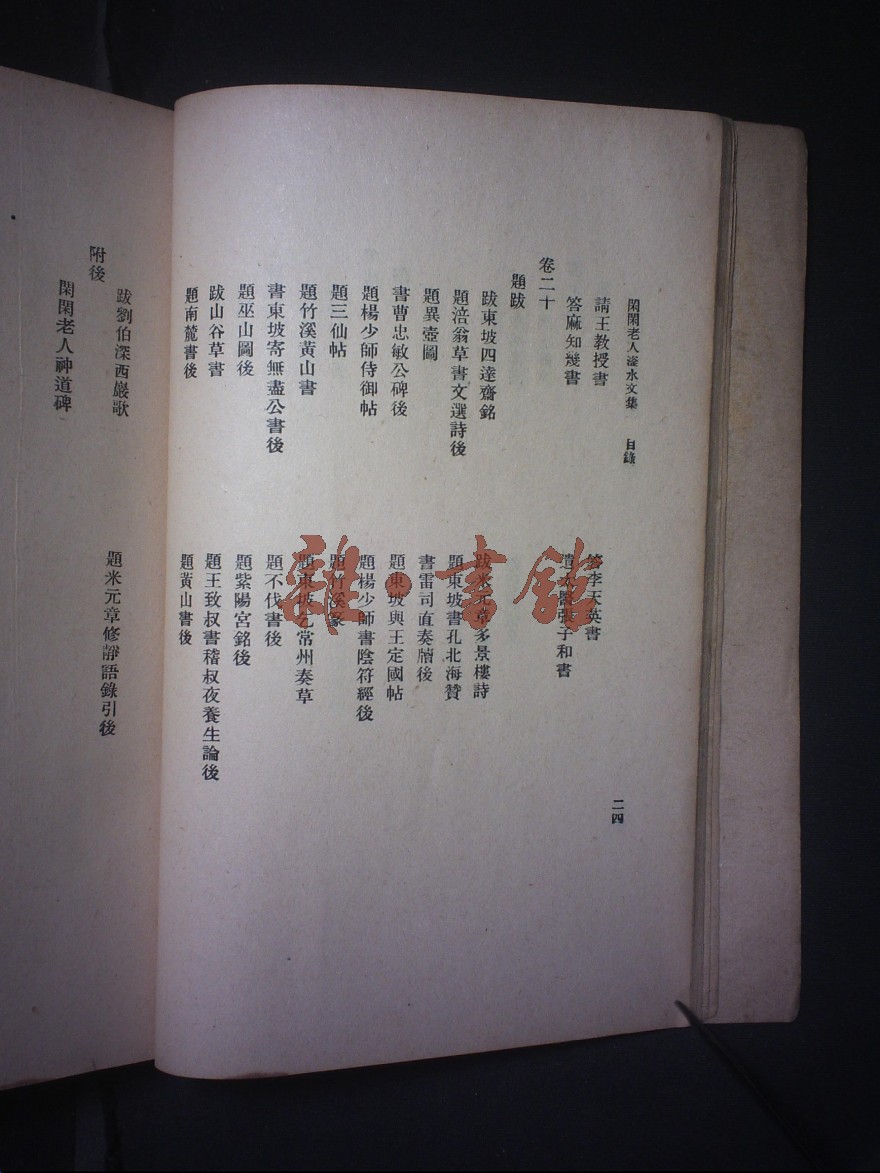 閑閑老人滏水文集　目錄
二四
請王教授書
答李天英書
答麻知幾書
遺太醫張子和書
卷二十
題跋
跋東坡四達齋銘
跋米元章多景樓詩
題涪翁草書文選詩後
題東坡書孔北海贊
題異壺圖
書雷司直奏牘後
書曹忠敏公碑後
題東坡與王定國帖
題楊少師侍御帖
題楊少師書陰符經後
題三仙帖
題竹溪篆
題竹溪黃山書
題東坡乞常州奏草
書東坡寄無盡公書後
題不伐書後
題巫山圖後
題紫陽宮銘後
跋山谷草書
題王致叔書嵇叔夜養生論後
題南麓書後
題黃山書後
跋劉伯深西巖歌
題米元章修靜語錄引後
附後
閑閑老人神道碑
雜·書館